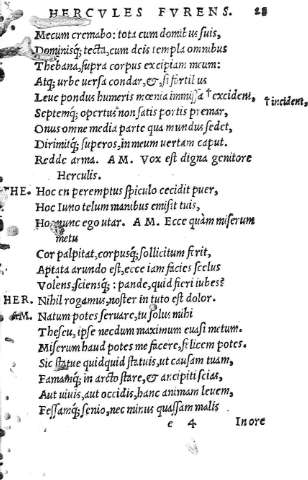 HERCVLES FVRENS. 28
Mecum cremabo: tota cum domibus suis,
Dominisq; tecta, cum deis templa omnibus
Thebana, supra corpus excipiam meum:
Atq; urbe uersa condar, & si fortibus
Leue pondus humeris mœnia immissa † excident, † incident,
Septemq; opertus non satis portis premar,
Onus omne media parte qua mundus sedet,
Dirimitq; superos, in meum uertam caput.
Redde arma. AM. Vox est digna genitore
Herculis.
THE. Hoc en peremptus spiculo cecidit puer,
Hoc Iuno telum manibus emisit tuis,
Hoc nunc ego utar. AM. Ecce quàm miserum
metu
Cor palpitat, corpusq; sollicitum ferit,
Aptata arundo est, ecce iam facies scelus
Volens, sciensq; : pande, quid fieri iubes?
HER. Nihil rogamus, noster in tuto est dolor.
AM. Natum potes seruare, tu solus mihi
Theseu, ipse necdum maximum euasi metum.
Miserum haud potes me facere, felicem potes.
Sic statue quidquid statuis, ut causam tuam,
Famamq; in arcto stare, & ancipiti scias,
Aut uiuis, aut occidis, hanc animam leuem,
Fessamq; senio, nec minus quassam malis
e 4 In ore